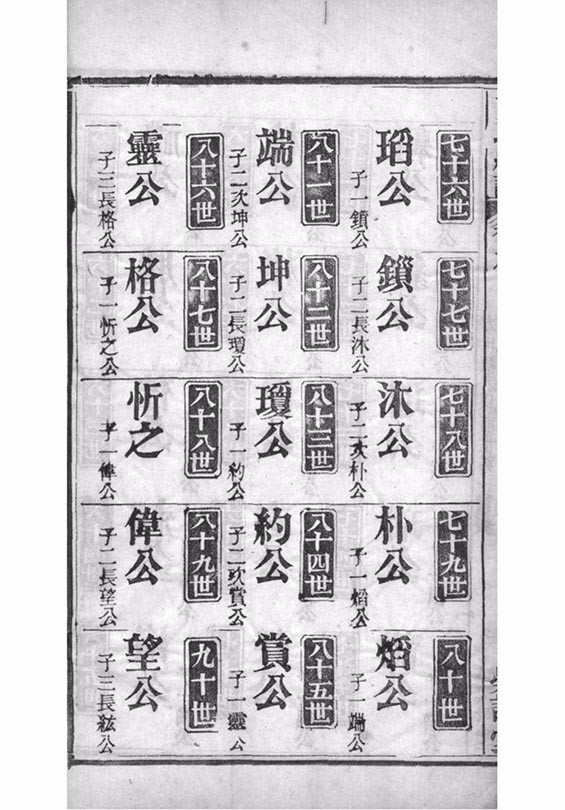 七十六世
瑫公
子一鎖公
七十七世
鎖公
子二長沐公
七十八世
沐公
子二次朴公
七十九世
朴公
子一熖公
八十世
熖公
子一端公
八十一世
端公
子二次坤公
八十二世
坤公
子二長瓊公
八十三世
瓊公
子一約公
八十四世
約公
子二次賞公
八十五世
賞公
子一靈公
八十六世
靈公
子三長格公
八十七世
格公
子一忻之公
八十八世
忻之
子一偉公
八十九世
偉公
子二長望公
九十世
望公
子三長紘公